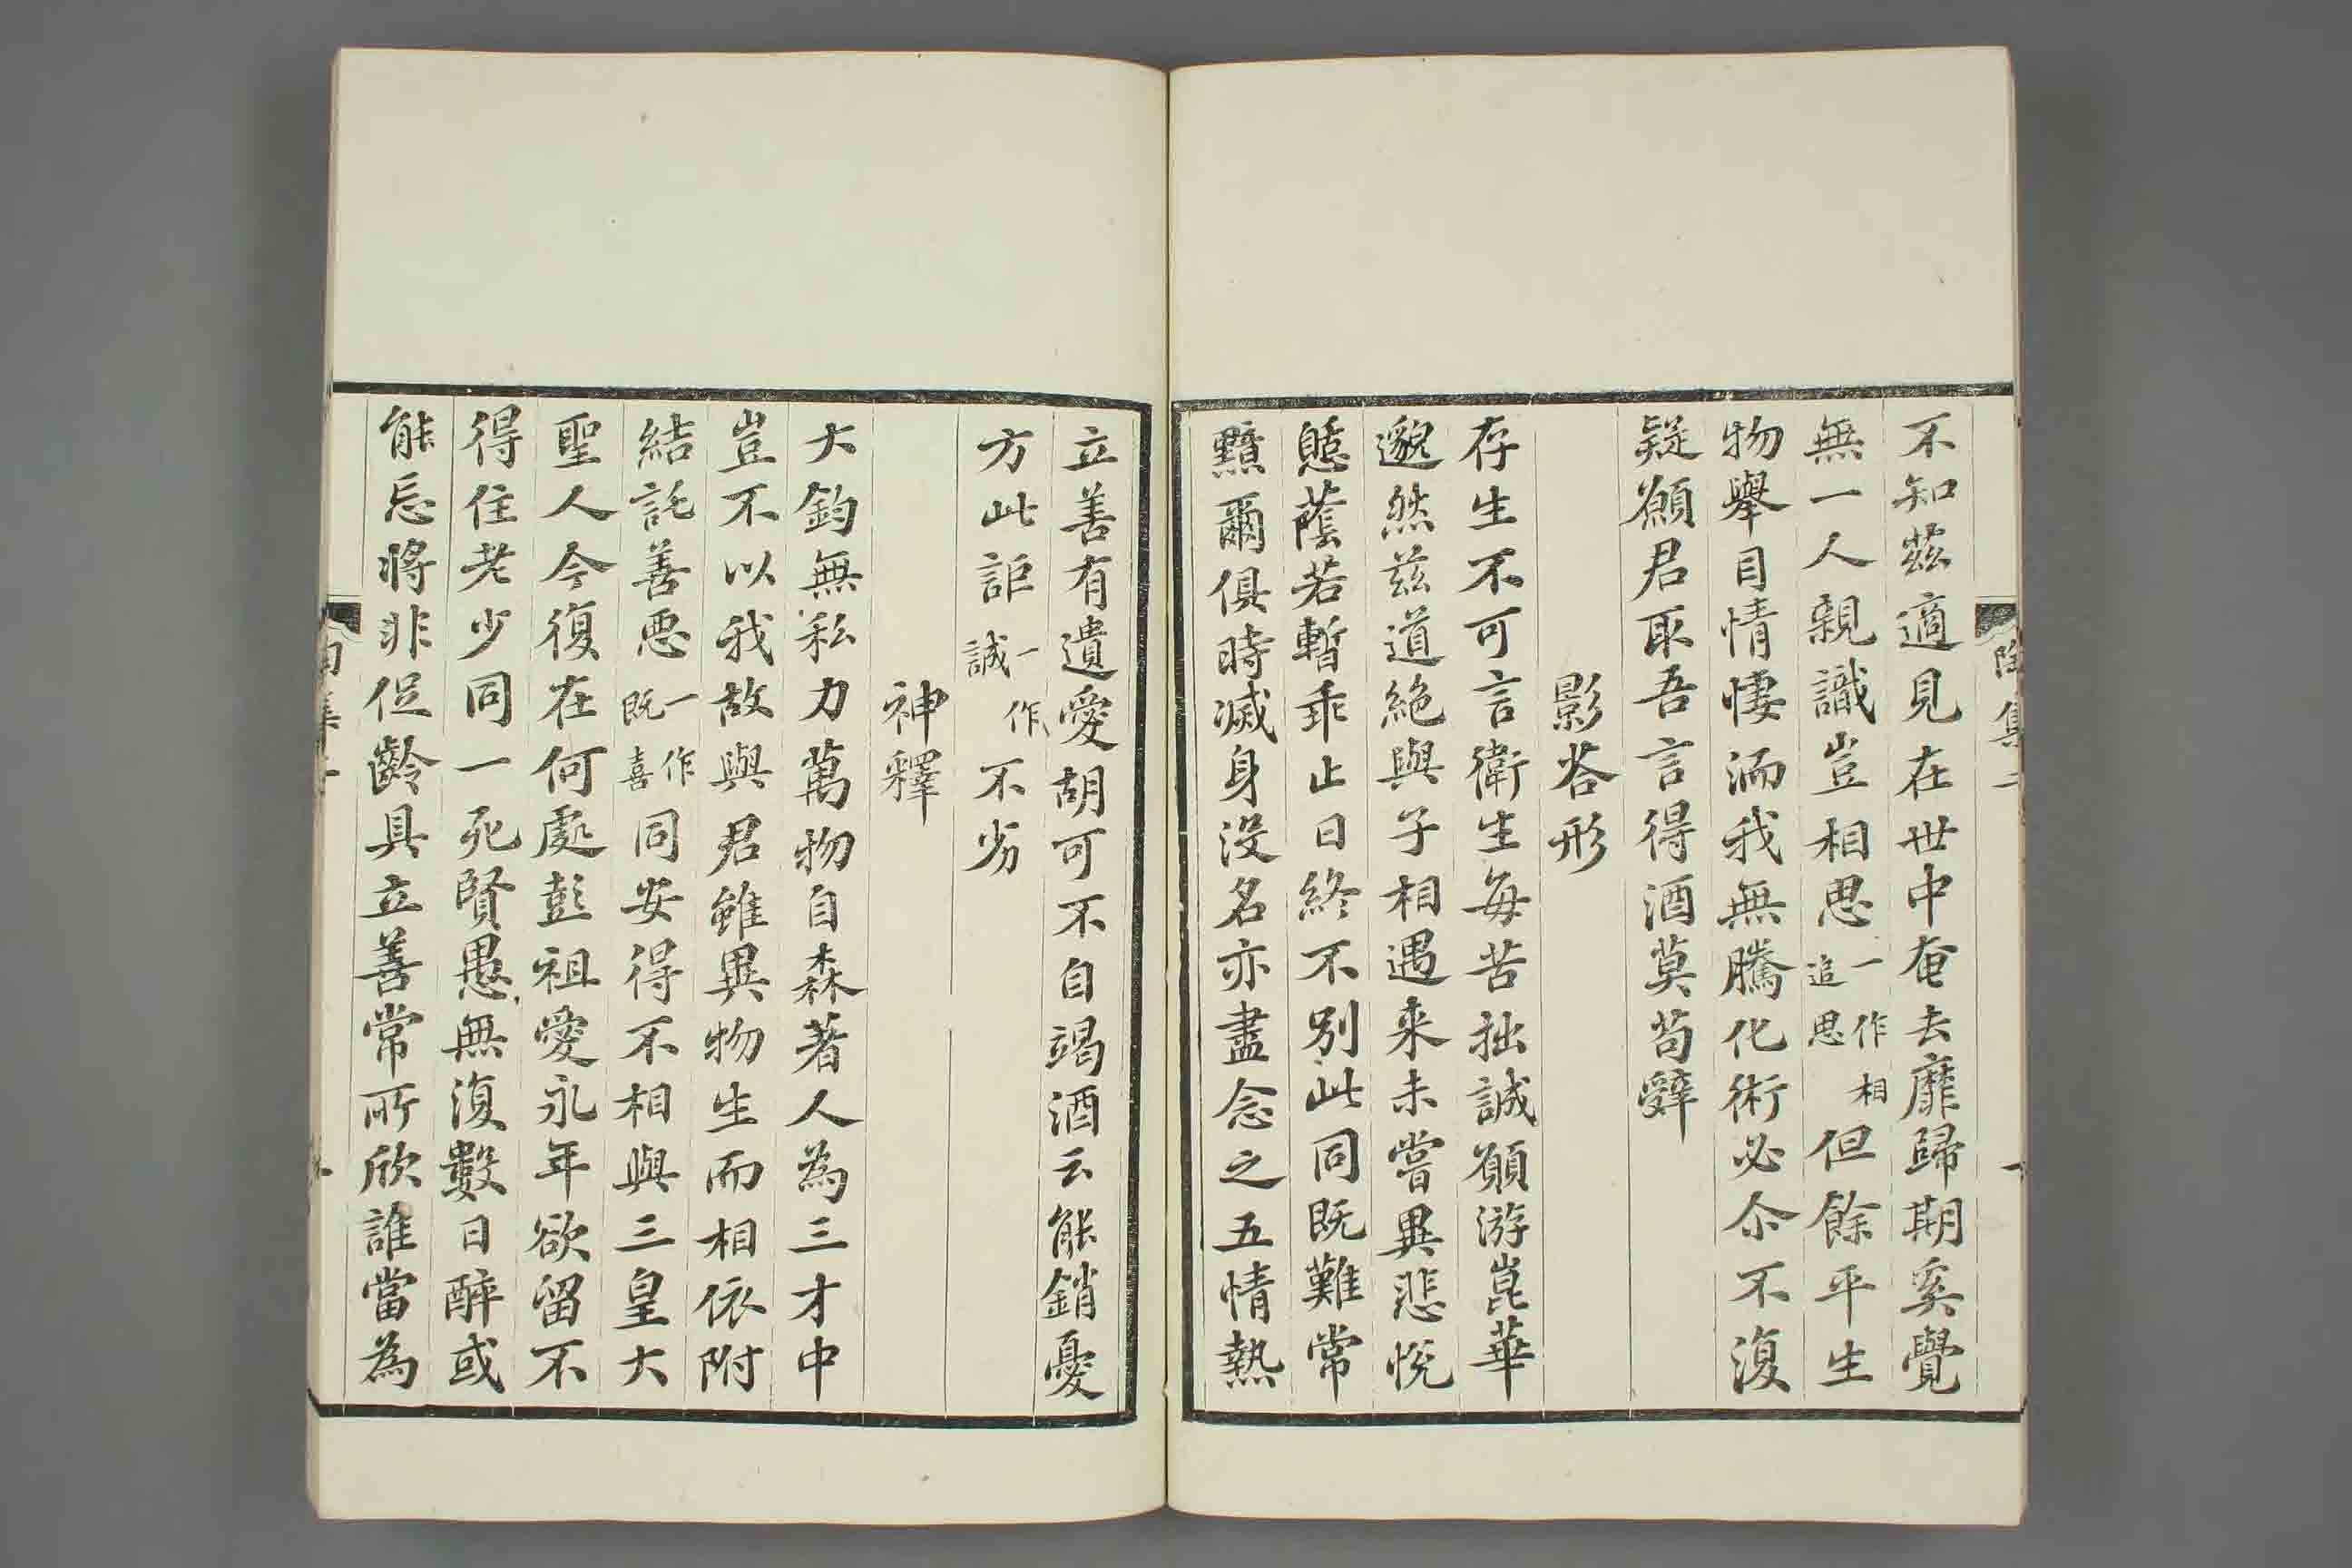 不知茲適見在世中奄去靡歸期奚覺
無一人親識豈相思一作相追思但餘平生
物舉目情悽洏我無騰化術必尒不復
疑願君取吾言得酒莫苟辤
影荅形
存生不可言衛生每苦拙誠願游崑華
邈然茲道絕與子相遇来未嘗異悲悅
憇蔭若暫乖止日終不別此同既難常
黯爾俱時滅身沒名亦盡念之五情熱
立善有遺愛胡可不自竭酒云能銷憂
方此詎一作誠不劣
神釋
大鈞無私力萬物自森著人為三才中
豈不以我故與君雖異物生而相依附
結託善惡一作既喜同安得不相與三皇大
聖人今復在何處彭祖愛永年欲留不
得住老少同一死賢愚無復數日醉或
能忘將非促齡具立善常所欣誰當為